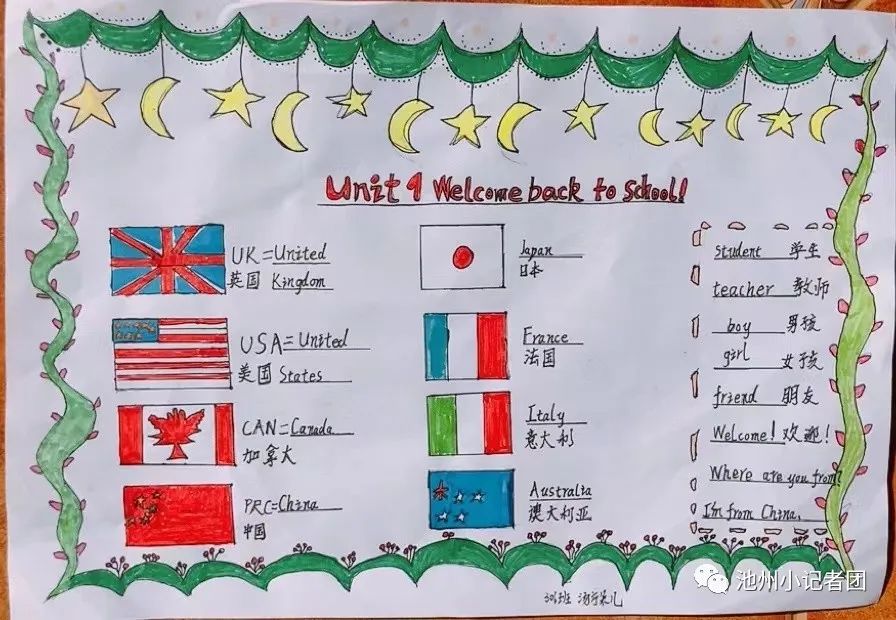 Unit 1 Welcome back to School!
UK=United
英国 Kingdom
USA=United
美国 States
CAN=Canada
加拿大
PRC=China
中国
Japan
日本
France
法国
Italy
意大利
Australia
澳大利亚
student 学生
teacher 教师
boy 男孩
girl 女孩
friend 朋友
Welcome! 欢迎!
Where are you from?
I'm from China.
池州小记者团